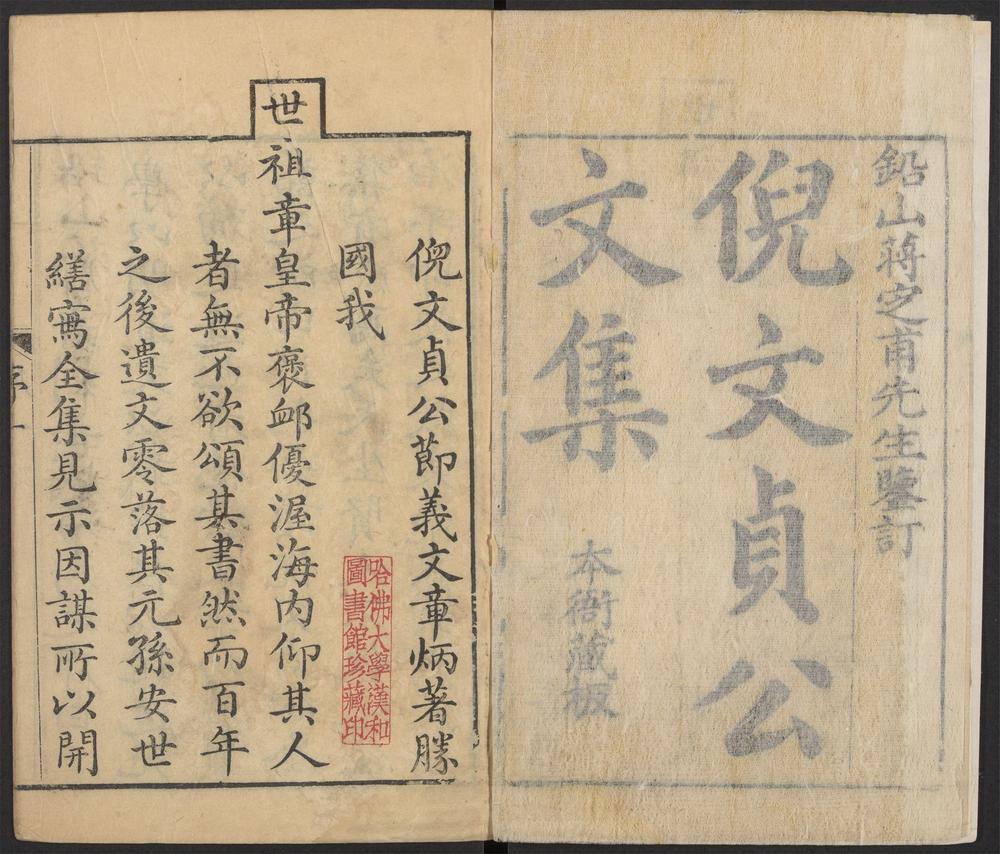 鉛山蔣定甫先生鑒訂
倪文貞公
文集
本衙藏板
倪文貞公節義文章炳著勝
國我
世祖章皇帝褒䘏優渥海內仰其人
者無不欲頌其書然而百年
之後遺文零落其元孫安世
繕寫全集見示因謀所以開
序一
哈佛大學漢和
圖書館珍藏印